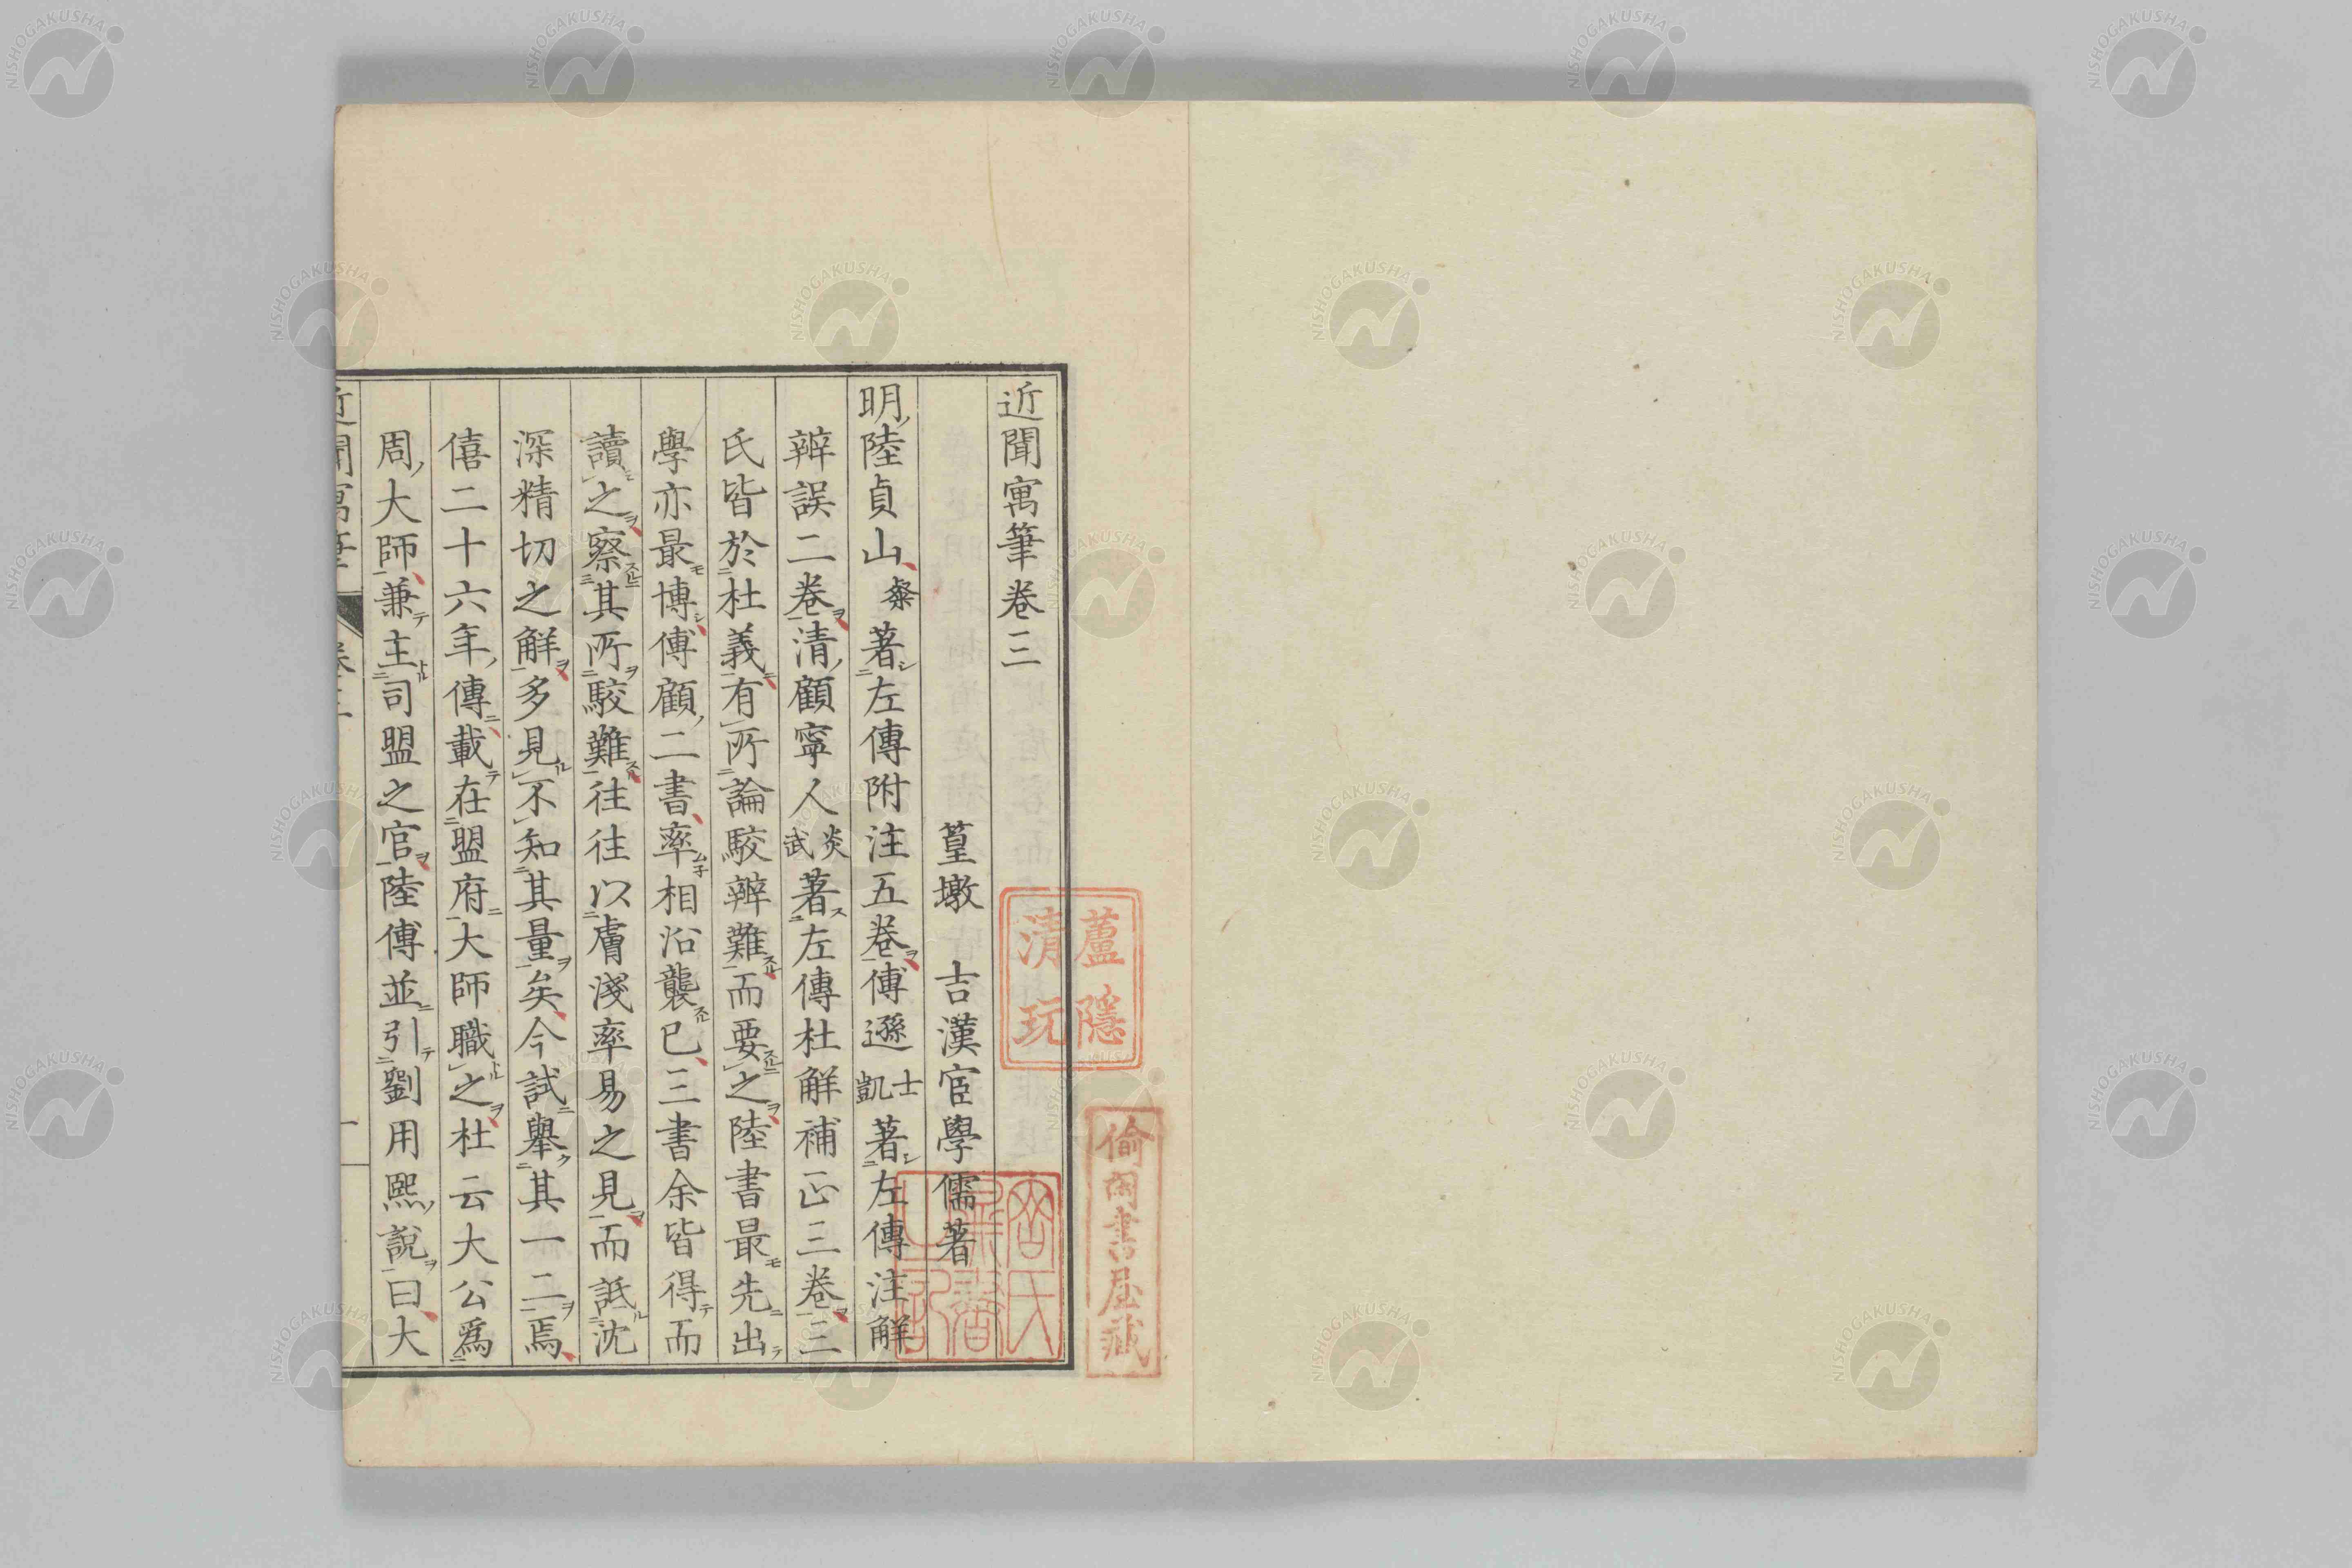 近聞寓筆卷三
篁墩 吉漢宦學儒著
明陸貞山粲著左傳附注五卷傅遜士凱著左傳注解
辨誤二卷清顧寧人炎武著左傳杜解補正三卷三
氏皆於杜義有所論駮辨難而要之陸書最先出
學亦最博傅顧二書率相沿襲已三書余皆得而
讀之察其所駮難往往以膚淺率易之見而詆沈
深精切之解多見不知其量矣今試擧其一二焉
僖二十六年傳載在盟府大師職之杜云大公爲
周大師兼主司盟之官陸傅並引劉用熙說曰大
近聞寓筆 卷三 一
蘆隱清玩
偷閑書屋藏
NISHOGAKUSHA